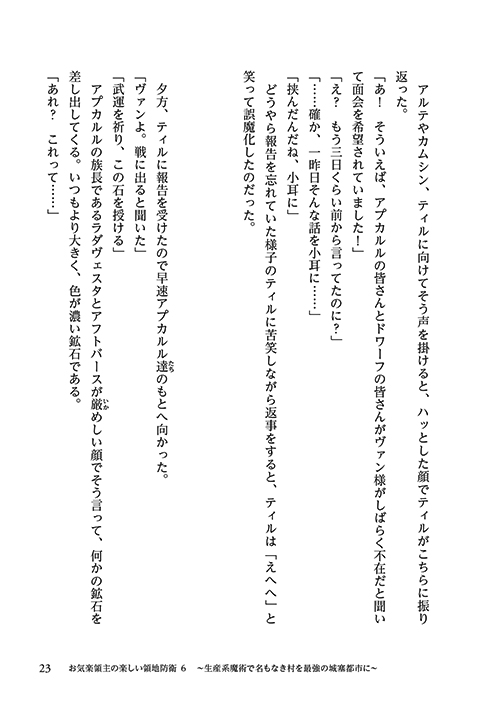 アルテやカムシン、ティルに向けてそう声を掛けると、ハッとした顔でティルがこちらに振り
返った。
「あ！　そういえば、アプカルルの皆さんとドワーフの皆さんがヴァン様がしばらく不在だと聞い
て面会を希望されていました！」
「え？　もう三日くらい前から言ってたのに？」
「……確か、一昨日そんな話を小耳に……」
「挟んだんだね、小耳に」
どうやら報告を忘れていた様子のティルに苦笑しながら返事をすると、ティルは「えへへ」と
笑って誤魔化したのだった。
夕方、ティルに報告を受けたので早速アプカルル達たちのもとへ向かった。
「ヴァンよ。戦に出ると聞いた」
「武運を祈り、この石を授ける」
アプカルルの族長であるラダヴェスタとアフトバースが厳いかめしい顔でそう言って、何かの鉱石を
差し出してくる。いつもより大きく、色が濃い鉱石である。
「あれ？　これって……」
23　お気楽領主の楽しい領地防衛 6　～生産系魔術で名もなき村を最強の城塞都市に～